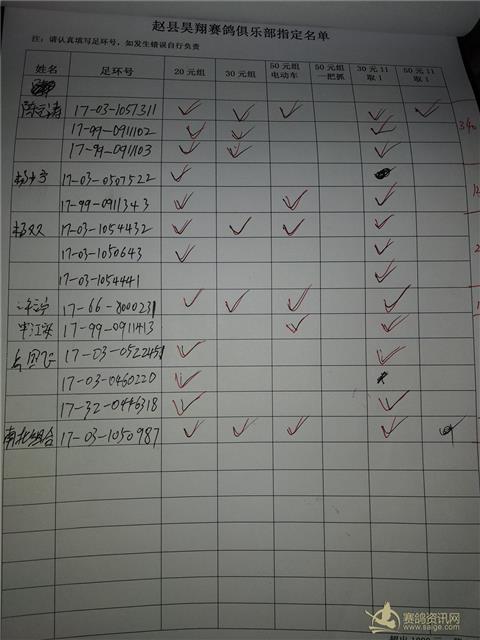 赵县昊翔赛鸽俱乐部指定名单
注：请认真填写足环号，如发生错误自行负责
姓名 足环号 20元组 30元组 50元组电动车 50元组一把抓 30元11取1 50元11取1
17-03-1057311
17-99-0911102
17-99-0911103
17-03-0507522
17-99-0911343
17-03-1054432
17-03-1050643
17-03-1054441
17-66-
17-99-0911413
17-03-0522451
17-03-0460220
17-32-0446318
南北组合 17-03-1050987
赛鸽资讯网
www.saige.com